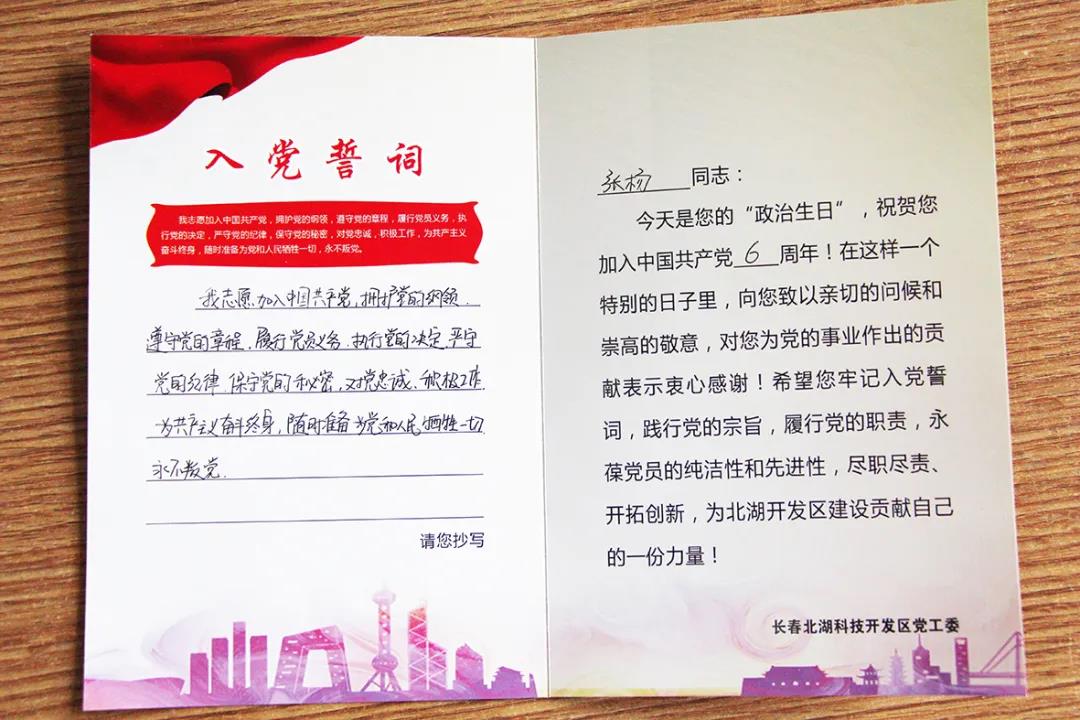 入党誓词
我志愿加入中国共产党，拥护党的纲领，遵守党的章程，履行党员义务，执
行党的决定，严守党的纪律，保守党的秘密，对党忠诚，积极工作，为共产主义
奋斗终身，随时准备为党和人民牺牲一切，永不叛党。
我志愿加入中国共产党，拥护党的纲领．
遵守党的章程．履行党员义务．执行党的决定．严守
党的纪律．保守党的秘密．对党忠诚．积极工作．
为共产主义奋斗终身，随时准备为党和人民牺牲一切
永不叛党．
请您抄写
张杨 同志：
今天是您的“政治生日”，祝贺您
加入中国共产党 6 周年！在这样一个
特别的日子里，向您致以亲切的问候和
崇高的敬意，对您为党的事业作出的贡
献表示衷心感谢！希望您牢记入党誓
词，践行党的宗旨，履行党的职责，永
葆党员的纯洁性和先进性，尽职尽责、
开拓创新，为北湖开发区建设贡献自己
的一份力量！
长春北湖科技开发区党工委